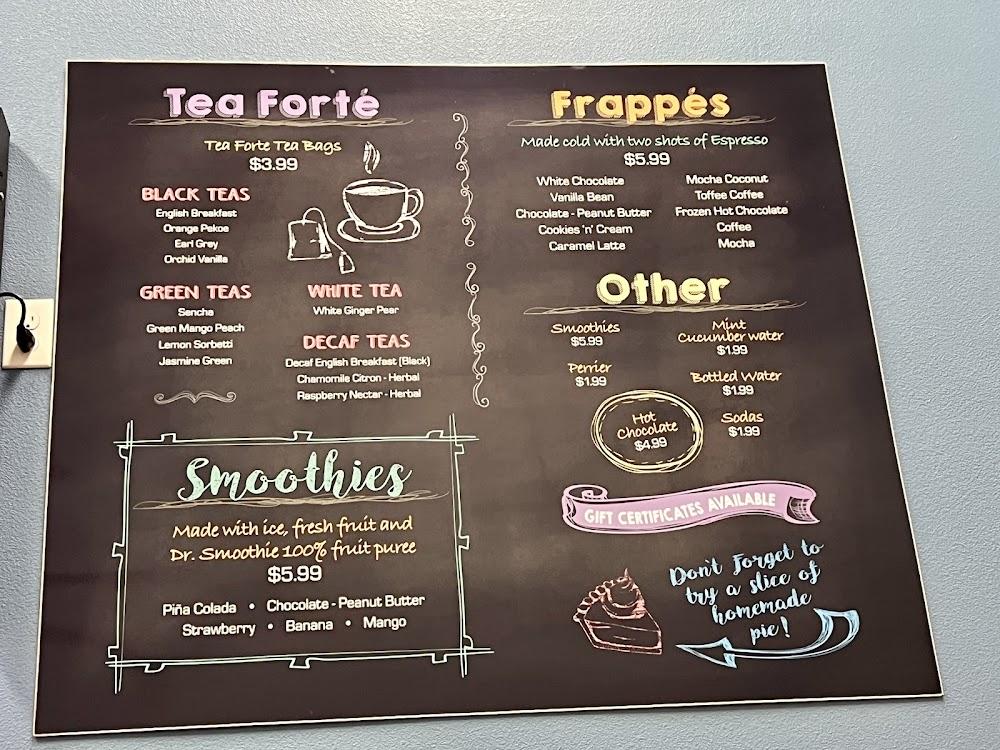 Tea Forté
Tea Forte Tea Bags
$3.99
BLACK TEAS
English Breakfast
Orange Pekoe
Earl Grey
Orchid Vanilla
GREEN TEAS
Sencha
Green Mango Peach
Lemon Sorbetti
Jasmine Green
WHITE TEA
White Ginger Pear
DECAF TEAS
Decaf English Breakfast (Black)
Chamomile Citron - Herbal
Raspberry Nectar - Herbal
Smoothies
Made with ice, fresh fruit and
Dr. Smoothie 100% fruit puree
$5.99
Piña Colada • Chocolate - Peanut Butter
Strawberry • Banana • Mango
Frappés
Made cold with two shots of Espresso
$5.99
White Chocolate
Vanilla Bean
Chocolate - Peanut Butter
Cookies 'n' Cream
Caramel Latte
Mocha Coconut
Toffee Coffee
Frozen Hot Chocolate
Coffee
Mocha
Other
Smoothies
$5.99
Mint
Cucumber water
$1.99
Perrier
$1.99
Bottled Water
$1.99
Hot
Chocolate
$4.99
Sodas
$1.99
GIFT CERTIFICATES AVAILABLE
Don't Forget to
try a slice of
homemade
pie!